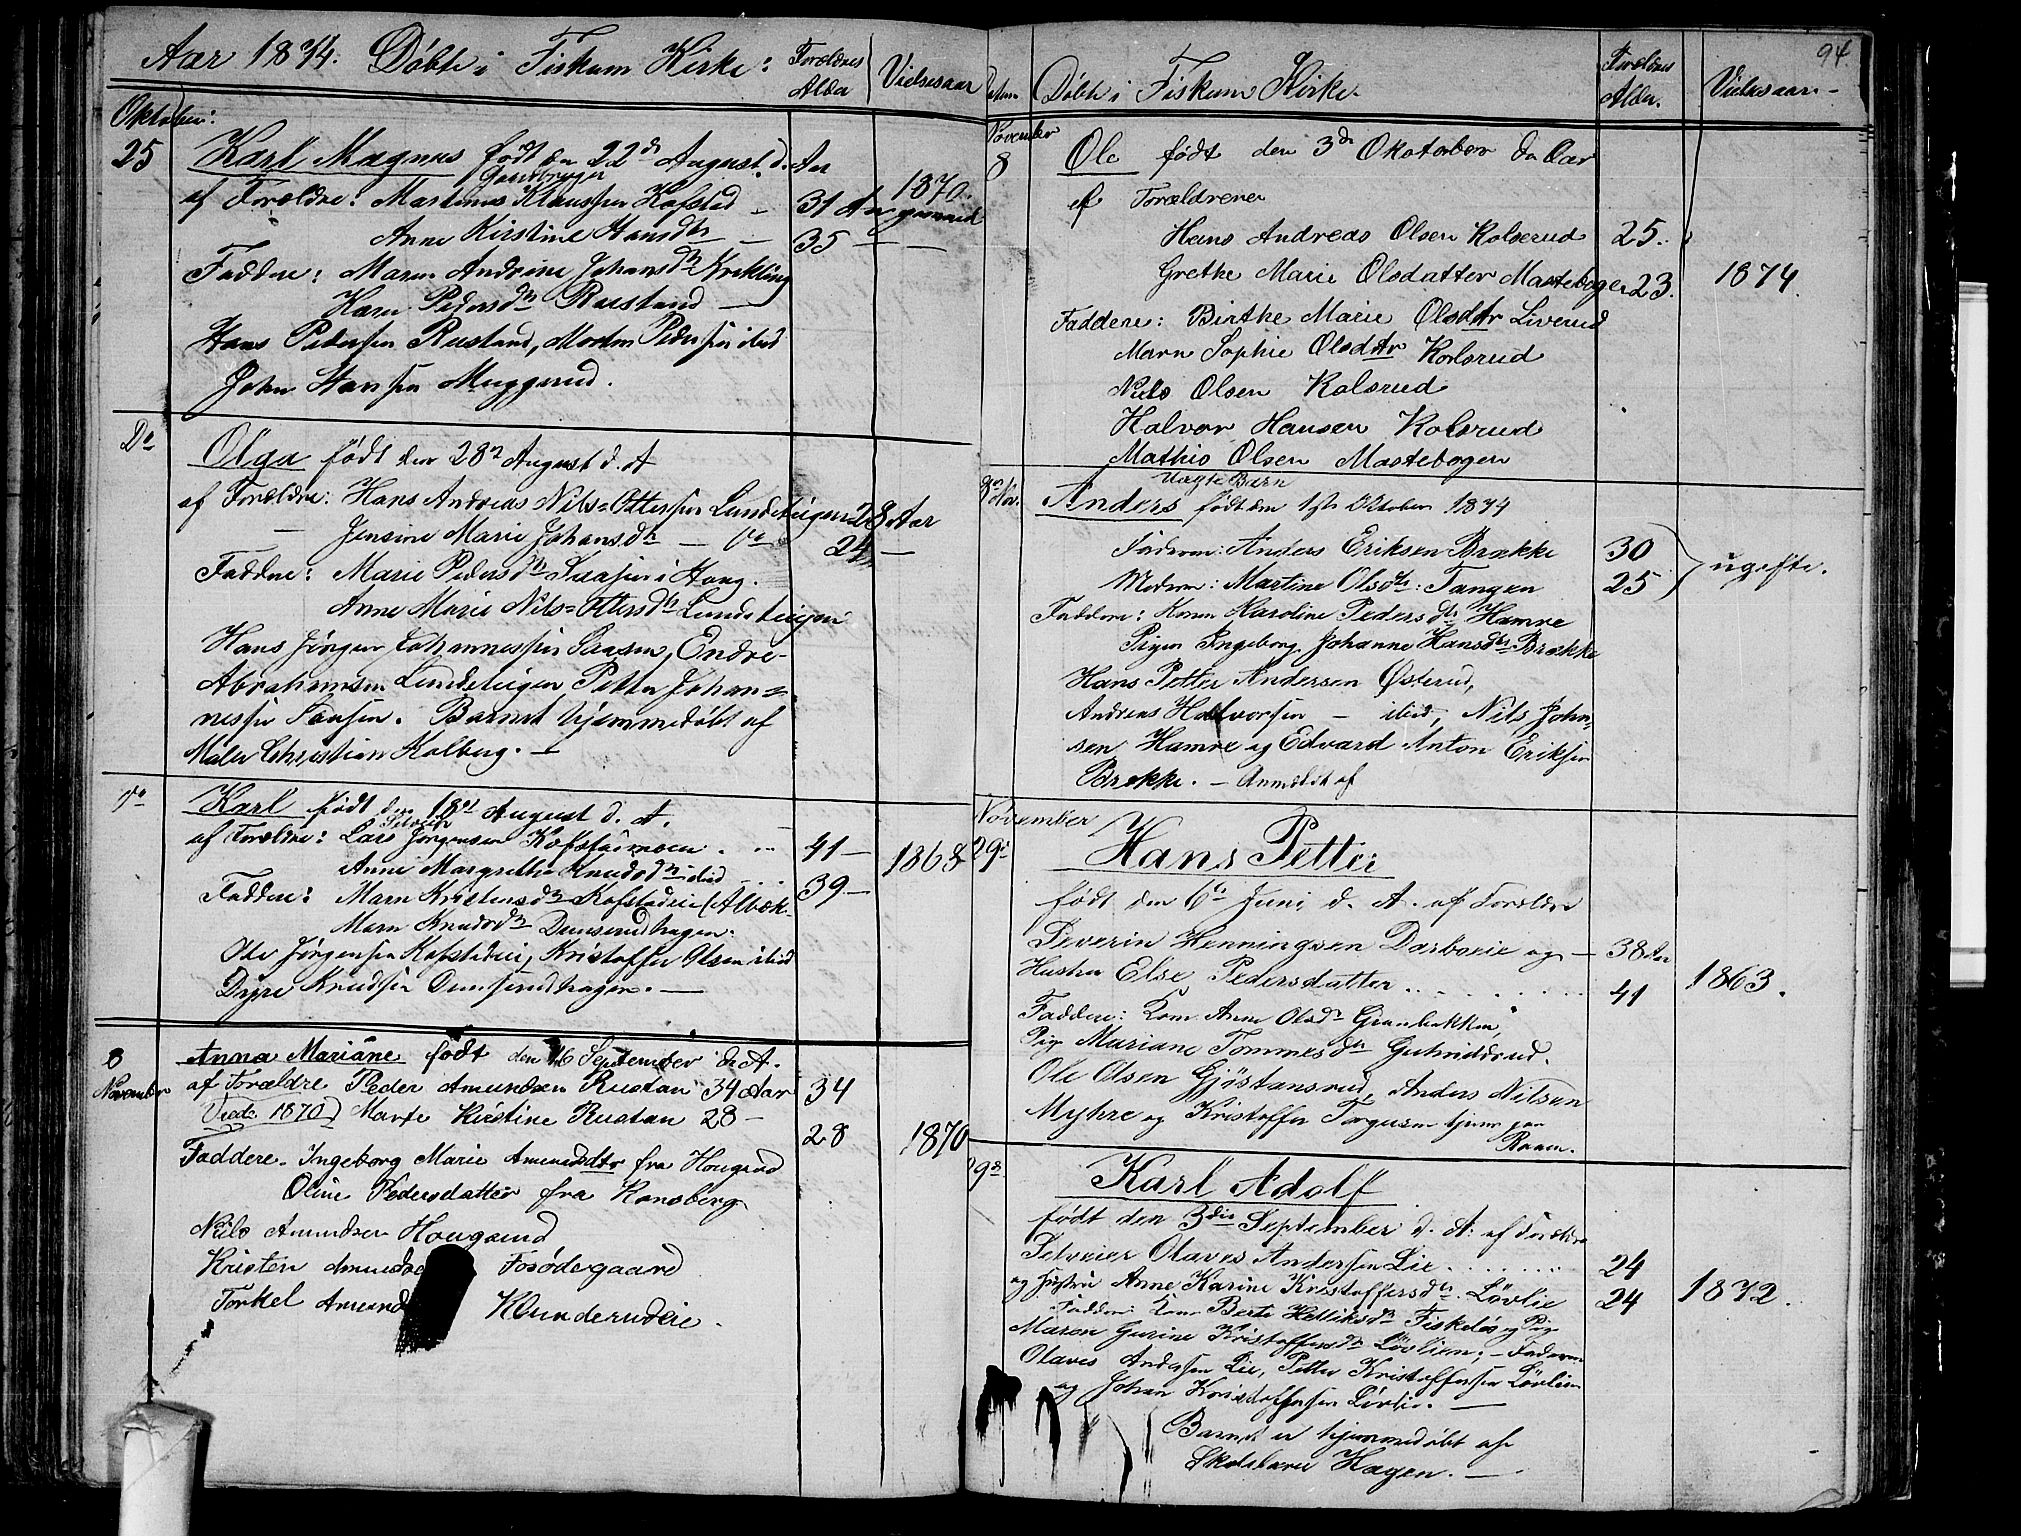 Aar 1874. Døbte i Fiskum Kirke:
Forældres Alder
Vielsesaar
Oktober:
25 Karl Magnus født den 22de August d. Aar
af Forældre: Martinus Klaussen Kofsted 31 Aar
1870
Anne Kirstine Hansdtr 35 —
Faddere: Maren Andrine Johansdtr Krekling
Karen Pedersdtr Rustand —
Hans Pedersen Rustand, Morten Pedersen ibid
John Hansen Muggerud.
Do Olga født den 28de August d. A
af Forældre: Hans Andreas Nils-Ottersen Lundsteigen 28 Aar
— Jensine Marie Johansdtr — Do 24 —
Faddere: Marie Pedersdtr i Haug.
Anne Marie Nils-Ottersdtr Lundsteigen
Hans Jørgen Johannessen Saasen, Endre
Abrahamsen Lundsteigen Petter Johan=
nessen Saasen. Barnet hjemmedøbt af
Maler Christian Kolberg. —
Do Karl født den 18de August d. A.
af Forældre: Lars Jørgensen Kofstadmoen 41 —
Anne Margrethe Knudsdtr ibid 39 —
1868
Faddere: Maren Kristensdtr Kofstadeie (Albæk
Maren Knudsdtr Dunserudhagen.
Ole Jørgensen Kofstadeie, Kristoffer Olsen ibid
Dyre Knudsen Dunserudhagen. —
8 November
Anna Mariane født den 16 September d. A.
af Forældre Peder Amundsen Rustan 34 Aar 34
Viede 1870) Marte Kirstine Rustan 28 — 28
1870
Faddere. Ingeborg Marie Amundsdtr fra Hougsrud
Oline Pedersdatter fra Konsberg
Nils Amundsen Hougsrud
Kristen Amundse Fosødegaard
Torkel Amund Kunderudeie.
94
Datum
Døbte i Fiskum Kirke
Forældres Alder.
Vielsesaar
November
8 Ole født den 3de Okotober da Aar
af Forældrene
Hans Andreas Olsen Kolserud 25.
Grethe Marie Olsdatter Mastebogen 23. 1874.
Faddere: Birthe Marie Olsdatr Liverud
Marn Sophie Olsdatr Kolsrud
Niels Olsen Kolsrud
Halvor Hansen Kolsrud
Mathis Olsen Mastebogen
8de Nov.
Uægte Barn
Anders født den 1ste Oktober 1874
Faderen: Anders Eriksen Brække 30
Moderen: Martine Olsdtr. Tangen 25
ugifte.
Faddere: Karen Karoline Pedersdtr Hamre
Pigen Ingeborg Johanne Hansdtr Brække
Hans Petter Andersen Østerud,
Andreas Halvorsen — ibid, Nils John=
sen Hamre og Edvard Anton Eriksen
Brække. — Anmeldt af
November
29de Hans Petter
født den 6te Juni d. A. af Forældre
Severin Henningsen Darboeie og — 38 Aar
Hustru Else Pedersdatter 41
1863.
Faddere: Kone Anne Olsdtr Granbakken
Pige Mariane Tommesdtr
Ole Olsen Gjøstansrud, Anders Nilsen
Myhre og Kristoffer Torgersen hjem paa
Raaen.
29de Karl Adolf
født den 3die September d. A. af Forældre
Selveier Olaves Andersen Lie 24
og Hustru Anne Karine Kristoffersdtr Løvlie 24 1872.
Faddere: Kone Berte Helliksdtr Fiskelos og Pige
Maren Gurine Kristoffersdtr Løvlien; — Faderen
Olaves Andersen Lie, Petter Kristoffersen Løvlien
og Johan Kristoffersen Løvlie. —
Barnet er hjemmedøbt af
Skolelærer Hagen. —